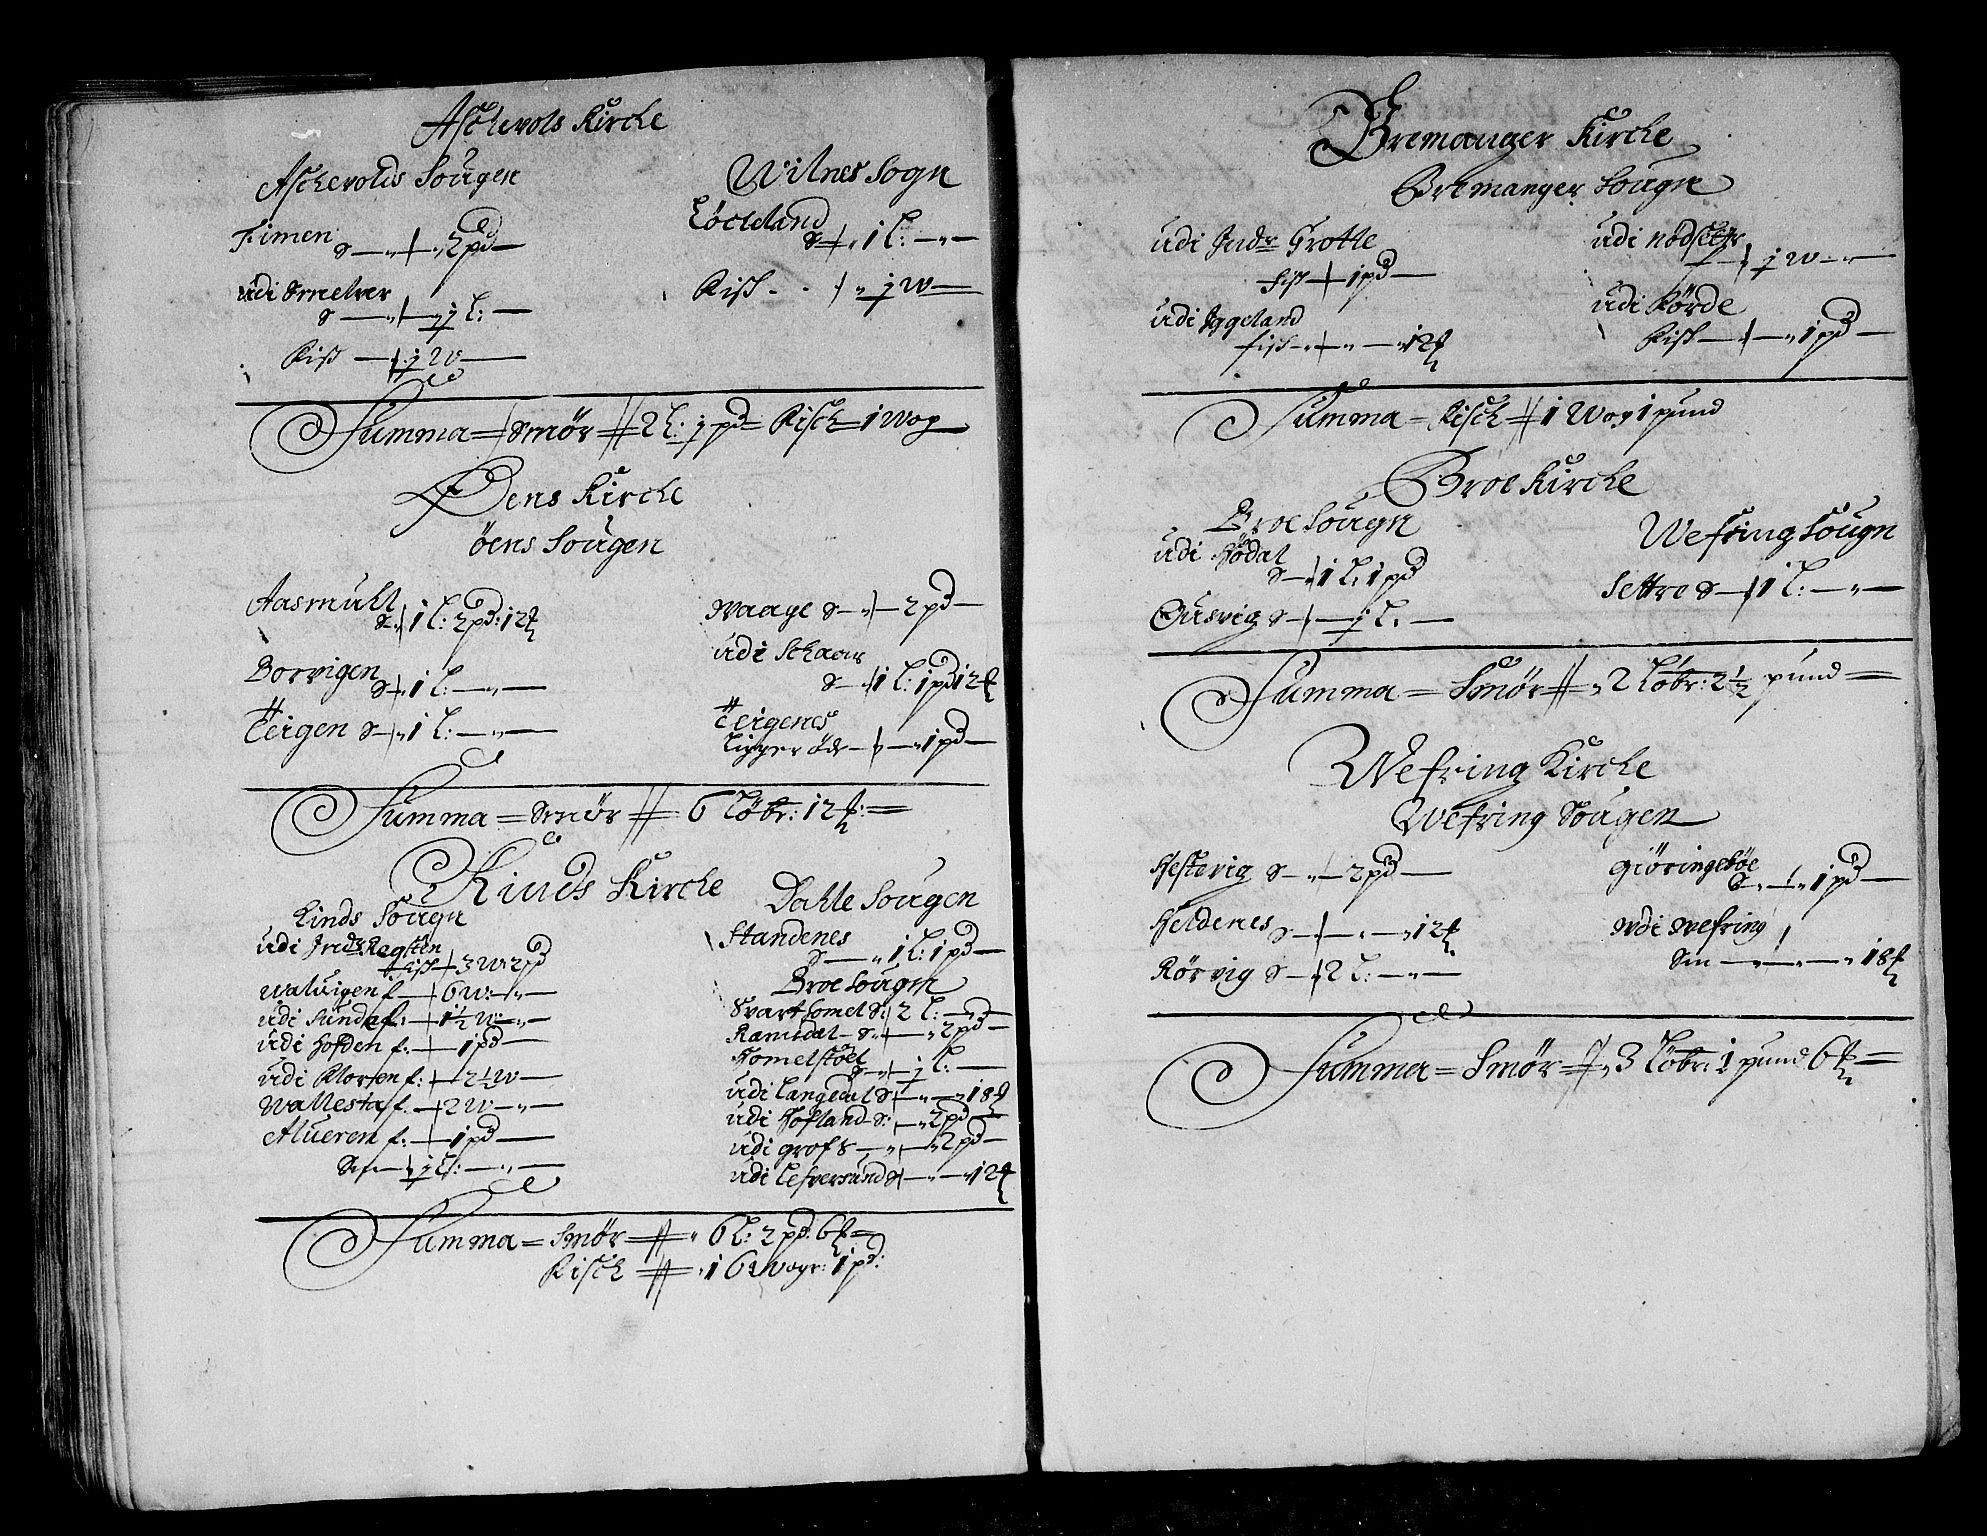 Aschevols Kirche
Aschevolds Sougen
Timen
S — 2 pd —
udi Smelver
S — j L: —
Fisk — j W —
Wilnes Sogn
Löcheland
S 1 L: —
Fisk — j W —
Summa = Smör 2 L: j pd = Fisch 1 Wog
Öens Kirche
öens Sougen
Aasmult
S 1 L: 2 pd: 12
Borvigen
S 1 L: —
Teigen S — 1 L: —
Waage S — 2 pd —
udi Schaar
S — 1 L: 1 pd 12
Teigenes
ligger öde — 1 pd —
Summa = Smör 6 Löbr: 12 =
Kinds Kirche
Kinds Sougn
udi Indr Regsten
fisk 3 W: 2 pd
Waluigen f. — 6 W: —
udi Sunda f: — 1½ W: —
udi Hofden f: — 1 pd —
udi Klorsen f: — 2½ W —
Wallesta f. — 2 W —
Alueren f: — 1 pd —
Sm — j L: —
Dahle Sougen
Standenes
S — 1 L: 1 pd —
Broe Sougn
Svart homel S: 2 L: —
Ramsdal S. — 2 pd —
Homelstöel
S — j L: —
udi Langedal S — 18
udi Hofland S: — 2 pd —
udi grofs — 2 pd —
udi Lefversund S — 12
Summa = Smör 6 L: 2 pd: 6 =
Fisch 16 Wogr: 1 pd:
Bremanger Kirche
Bremanger Sougn
udi Indr Grotte
fisk 1 pd —
udi Iggeland
fisk — 12
udi Nödsetr
— j W —
udi Förde
Fisk — 1 pd —
Summa = Fisch 1 Wog 1 pund
Broe Kirche
Broe Sougn
udi Hödal
S — 1 L: 1 pd
Gusvig S — j L. —
Wefring Sougn
Settre S — 1 L: —
Summa = Smör 2 Löbr: 2 ½ pund =
Wefring Kirche
Wefring Sougen
Hestevig S — 2 pd —
Heldenes S — 12
Rörvig S — 2 L: —
Giöringeböe
S — 1 pd —
udi Wefring
Sm — 18
Summa = Smör 3 Löbr: 1 pund 6 =